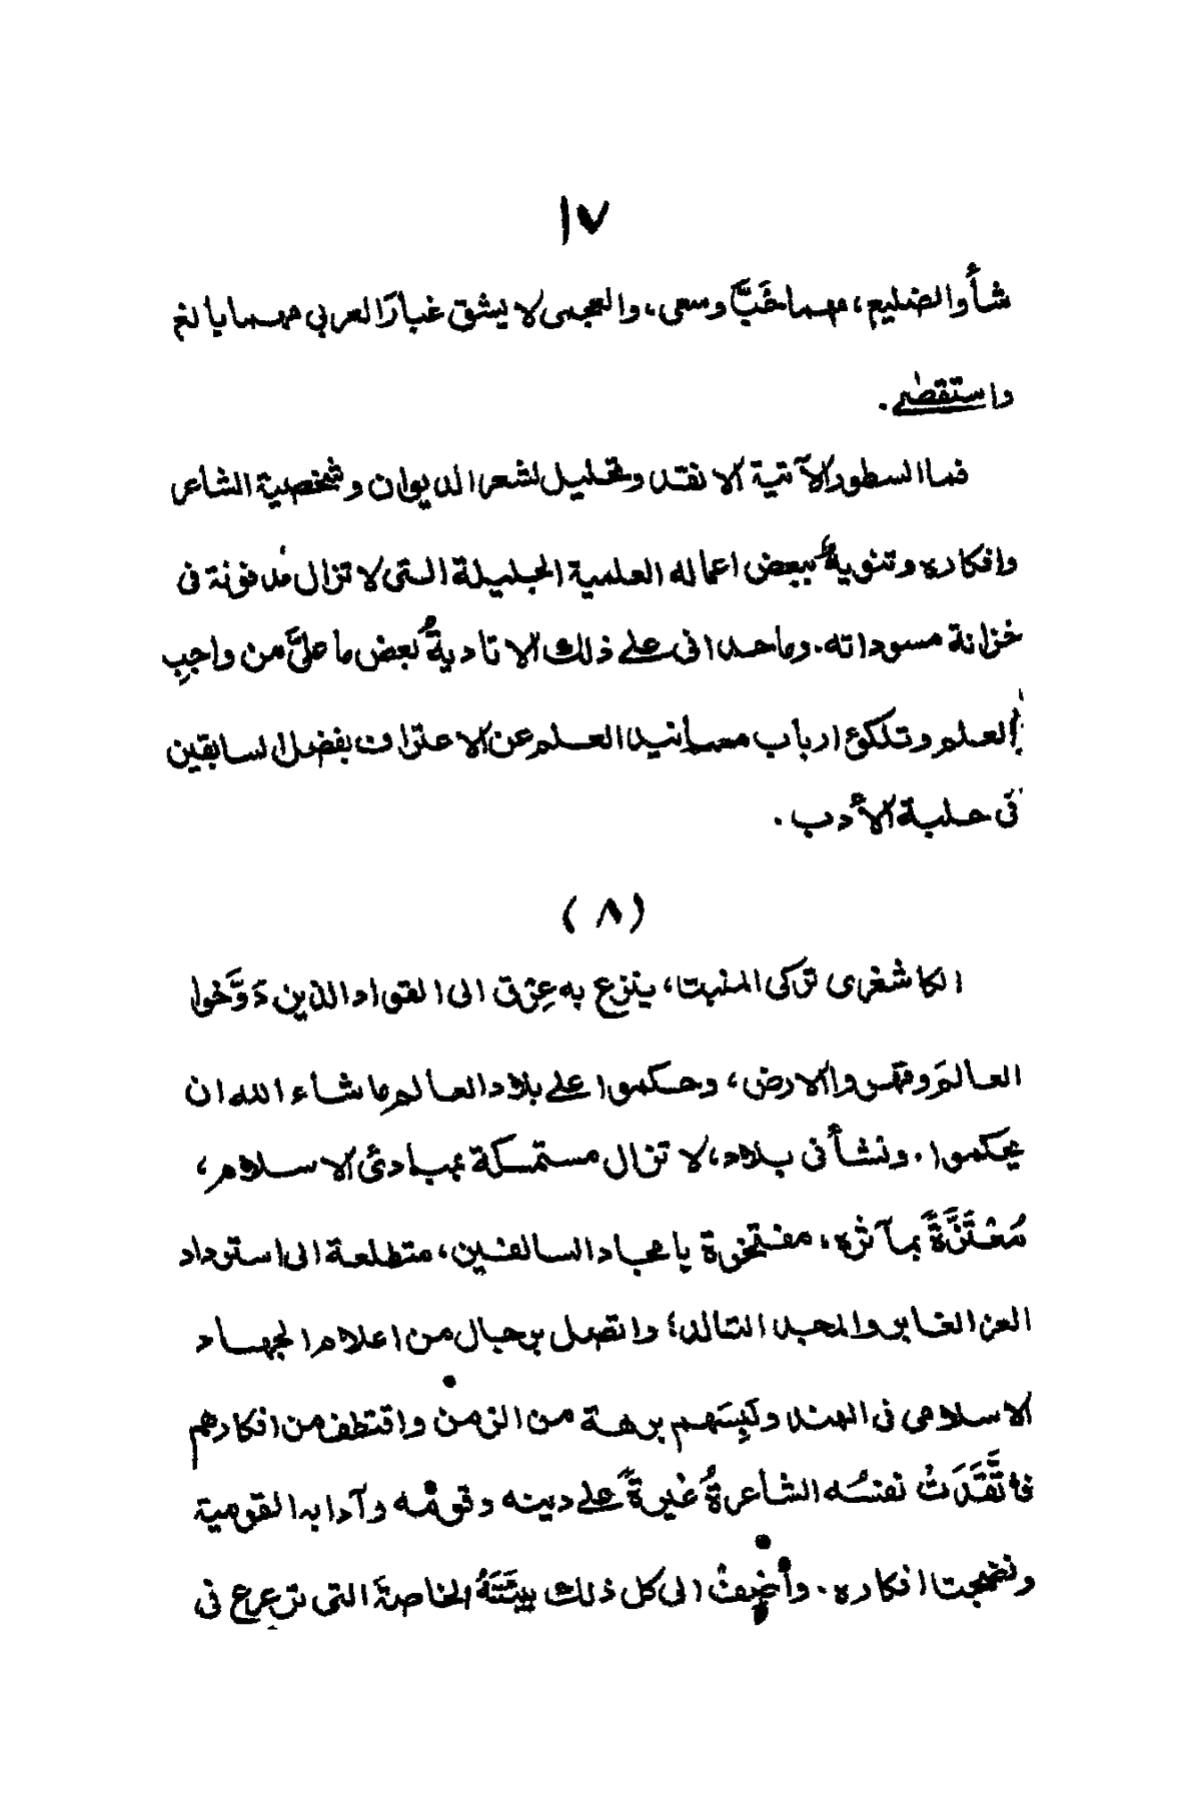 ١٧
شأو الضليع، مهما خَبَّ وسعى، والعجمى لا يشق غبارَ العربي مهما بالغ
واستقصٰى.
فما السطور الآتية الا نقد وتحليل لشعر الديوان وشخصية الشاعر
وافكاره وتنوية ببعض اعماله العلمية الجليلة التى لا تزال مُدفونة فى
خزانة مسوداته. وما حدا نى على ذلك الا تاديةٌ لبعض ما علىَّ من واجبِ
العلم وتلكوءِ ارباب مسانيد العلم عن الاعتراف بفضل السابقين
فى حلبة الأدب.
( ٨ )
الكاشغرى تركى المنبت، ينزع به عِرق الى القواد الذين دَوَّخوا
العالمَ وقهروا الارض، وحكموا على بلاد العالم ما شاء الله ان
يحكموا. ونشأ فى بلاد، لا تزال مستمسكة بمبادئ الاسلام،
مُعْتَزَّةً بمآثره، مفتخرة با مجاد السالفين، متطلعة الى استرداد
العز الغابر والمجد التالد؛ واتصل برجال من اعلام الجهاد
الاسلامى فى الهند ولَبِسَهم برهة من الزمن واقتطف من افكارهم
فتَّقَدَتْ نفسُه الشاعرةُ غَيرةً على دينه وقومه وآدابه القومية
ونضجت افكاره. وأضِيفتْ الى كل ذلك بيئَتَهُ الخاصةَ التى ترعرع فى